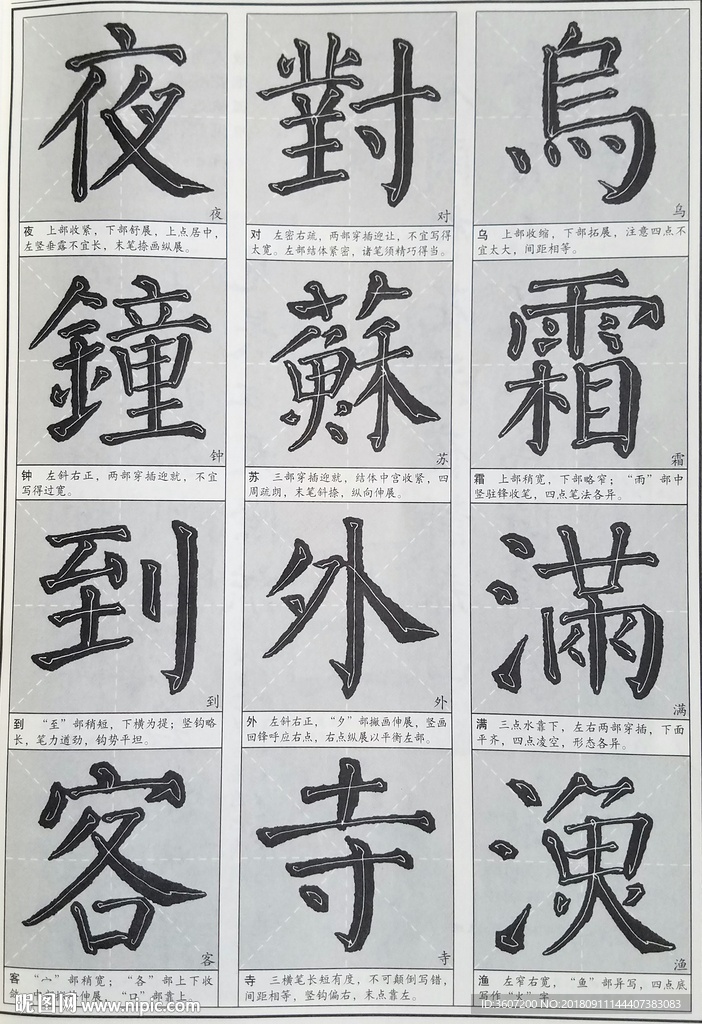 夜
夜
夜 上部收紧，下部舒展，上点居中，
左竖垂露不宜长，末笔捺画纵展。
對
对
对 左密右疏，两部穿插迎让，不宜写得
太宽。左部结体紧密，诸笔须精巧得当。
烏
乌
乌 上部收缩，下部拓展，注意四点不
宜太大，间距相等。
鐘
钟
钟 左斜右正，两部穿插迎就，不宜
写得过宽。
蘇
苏
苏 三部穿插迎就，结体中宫收紧，四
周疏朗，末笔斜捺，纵向伸展。
霜
霜
霜 上部稍宽，下部略窄；“雨”部中
竖驻锋收笔，四点笔法各异。
到
到
到 “至”部稍短，下横为提；竖钩略
长，笔力遒劲，钩势平坦。
外
外
外 左斜右正，“夕”部撇画伸展，竖画
回锋呼应右点，右点纵展以平衡左部。
滿
满
满 三点水靠下，左右两部穿插，下面
平齐，四点凌空，形态各异。
客
客
客 “宀”部稍宽；“各”部上下收
伸展，“口”部靠上。
寺
寺
寺 三横笔长短有度，不可颠倒写错，
间距相等，竖钩偏右，末点靠左。
漁
渔
渔 左窄右宽，“鱼”部异写，四点底
写作“大”字
昵图网 www.nipic.com
ID:3607200 NO:20180911144407383083